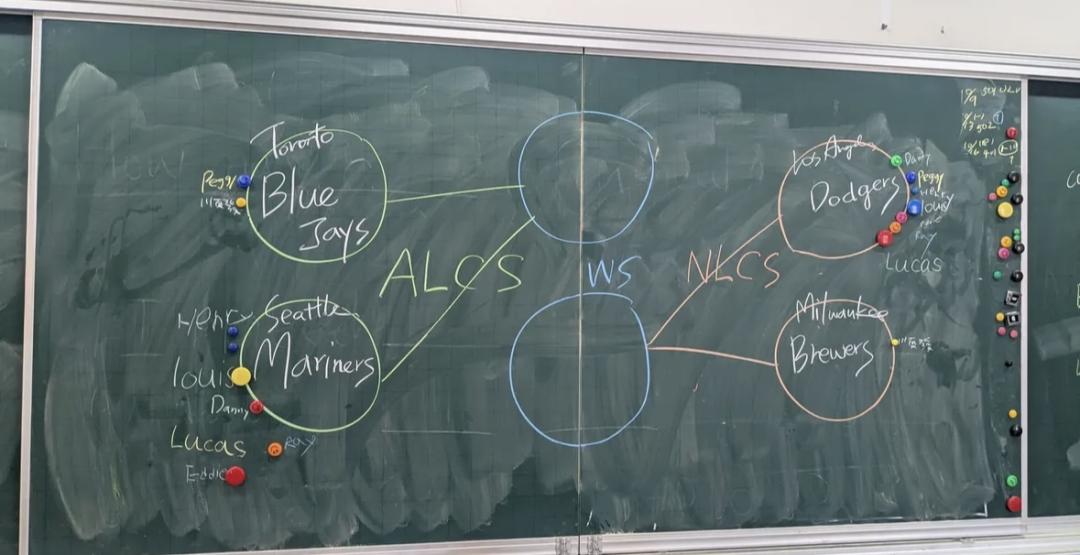 Toronto
Blue
Jays
Peggy
ALCS
Seattle
Mariners
Henry
Louis
Danny
Lucas
Ray
Eddie
WS
NLCS
Los Angeles
Dodgers
Danny
Peggy
Henry
Louis
Ray
Lucas
Milwaukee
Brewers